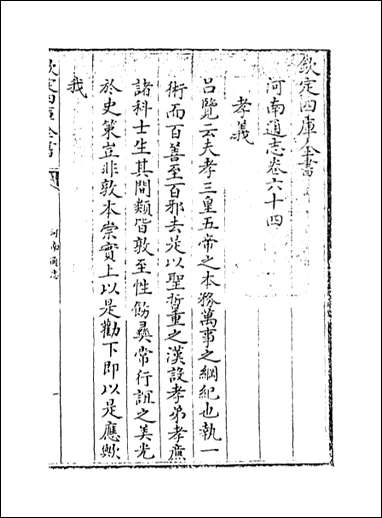 欽定四庫全書
河南通志卷六十四
孝義
呂覽云夫孝三皇五帝之本務萬事之綱紀也執一
術而百善至百邪去是以聖哲重之漢設孝弟孝廉
諸科士生其間類皆敦至性飭彞常行誼之美光
於史策豈非敦本崇實上以是勸下即以是應歟
我
欽定四庫全書
河南通志
一